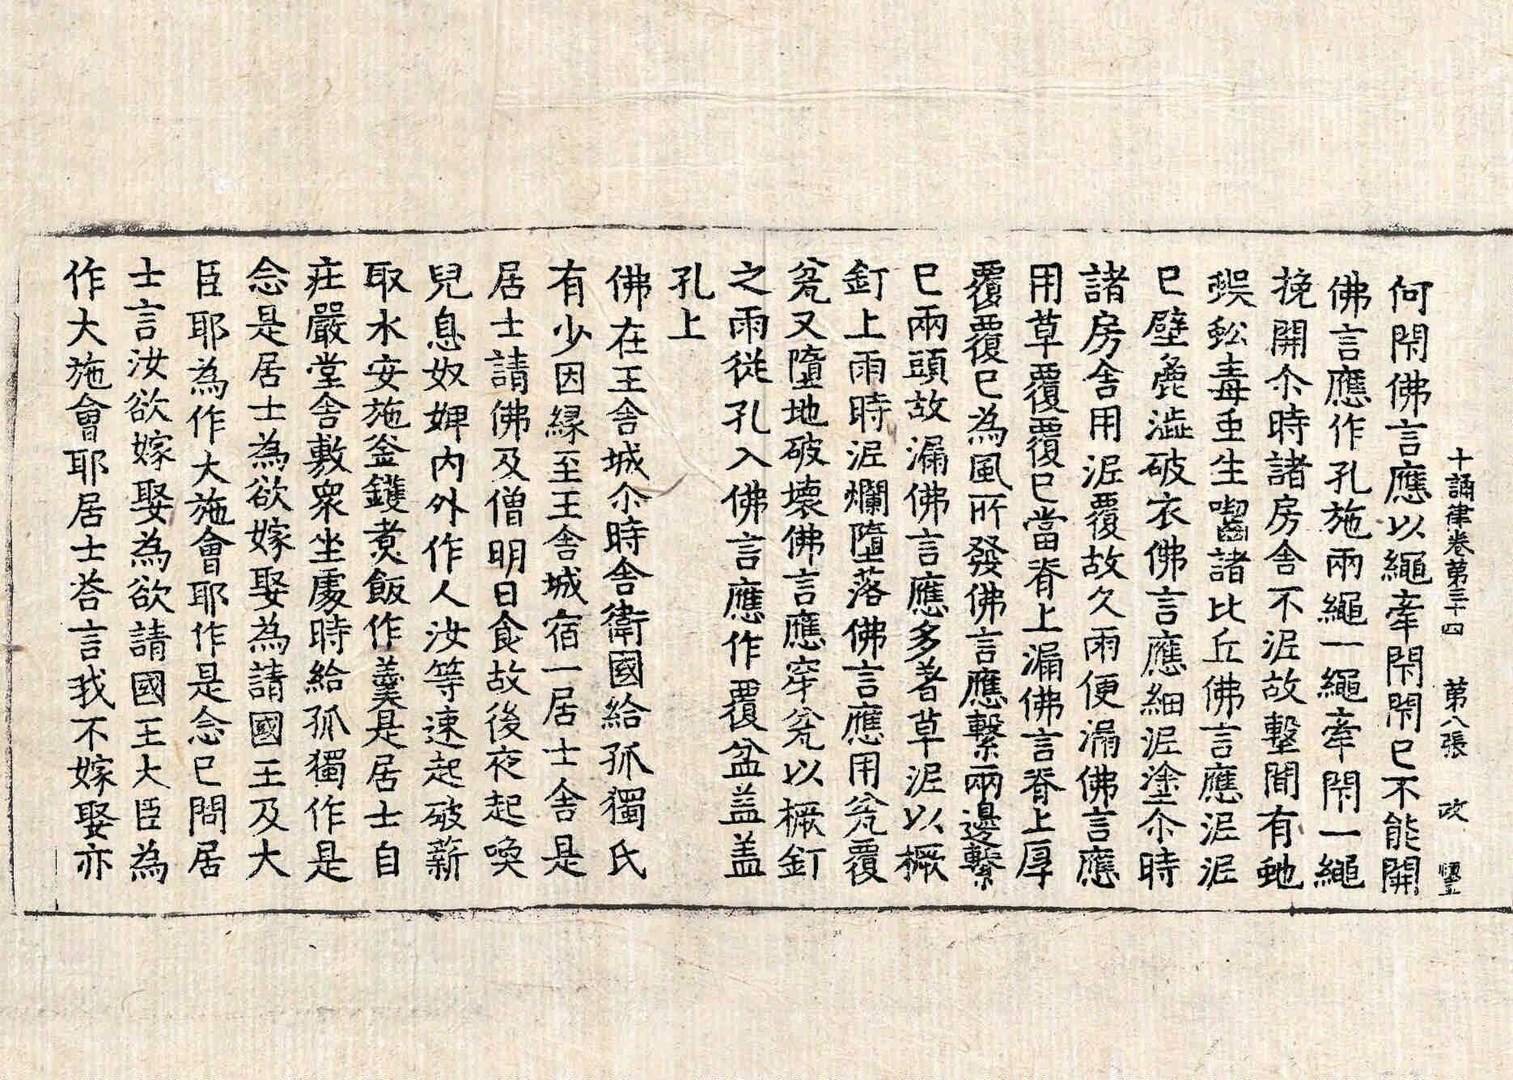 十誦律卷第三十四　第八張　政
何閇佛言應以繩牽閇閇已不能開
佛言應作孔施兩繩一繩牽閇一繩
挽開尒時諸房舍不泥故墼間有虵
蜈蚣毒虫生嚙諸比丘佛言應泥泥
已壁麁澁破衣佛言應細泥塗尒時
諸房舍用泥覆故久雨便漏佛言應
用草覆覆已當脊上漏佛言脊上厚
覆覆已為風所發佛言應繫兩邊繫
已兩頭故漏佛言應多著草泥以橛
釘上雨時泥爛墮落佛言應用瓫覆
瓫又墮地破壞佛言應穿瓫以橛釘
之雨從孔入佛言應作覆盆盖盖
孔上
佛在王舍城尒時舍衛國給孤獨氏
有少因緣至王舍城宿一居士舍是
居士請佛及僧明日食故後夜起喚
兒息奴婢內外作人汝等速起破薪
取水安施釜鑊煑飯作羹是居士自
莊嚴堂舍敷衆坐處時給孤獨作是
念是居士為欲嫁娶為請國王及大
臣耶為作大施會耶作是念已問居
士言汝欲嫁娶為欲請國王大臣為
作大施會耶居士荅言我不嫁娶亦